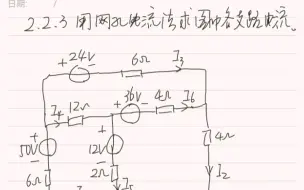 日期 /
2.2.3 用网孔电流法求图中各支路电流。
+24V- 6Ω I₃
I₄ 12Ω +36V- 4Ω I₆
+ + 4Ω
50V 12V
- -
6Ω 2Ω I₅ I₂